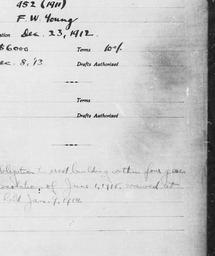 452 (1911)
F. W. Young
ation Dec. 23, 1912.
$6000 Terms 10%
ec. 8, '13 Drafts Authorized
Terms
Drafts Authorized
obligation to erect building within four years
of June 1, 1915, waived at
held Jan. 9, 1914